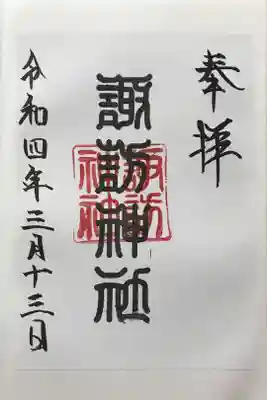 奉拝
諏訪神社
諏訪神社
令和四年三月十三日